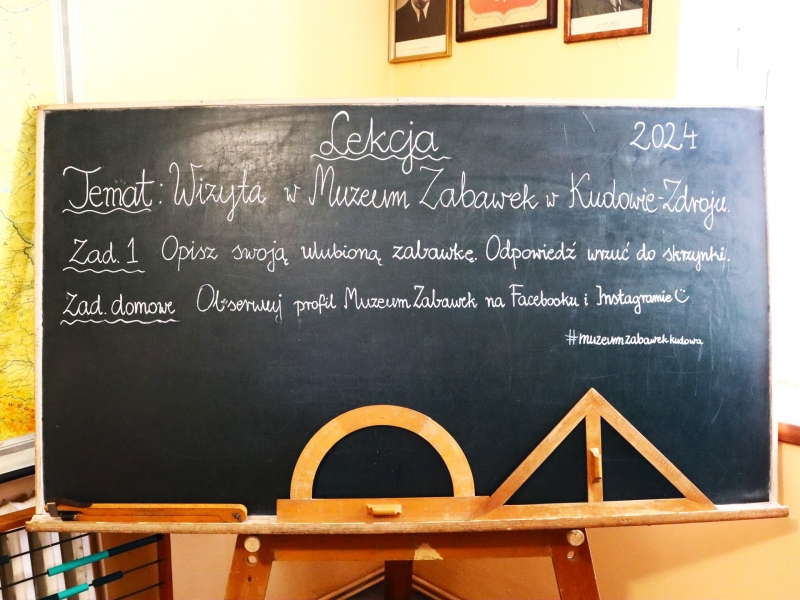 Lekcja 2024
Temat: Wizyta w Muzeum Zabawek w Kudowie-Zdroju.
Zad. 1 Opisz swoją ulubioną zabawkę. Odpowiedź wrzuć do skrzynki.
Zad. domowe Obserwuj profil Muzeum Zabawek na Facebooku i Instagramie☺
#muzeumzabawekkudowa